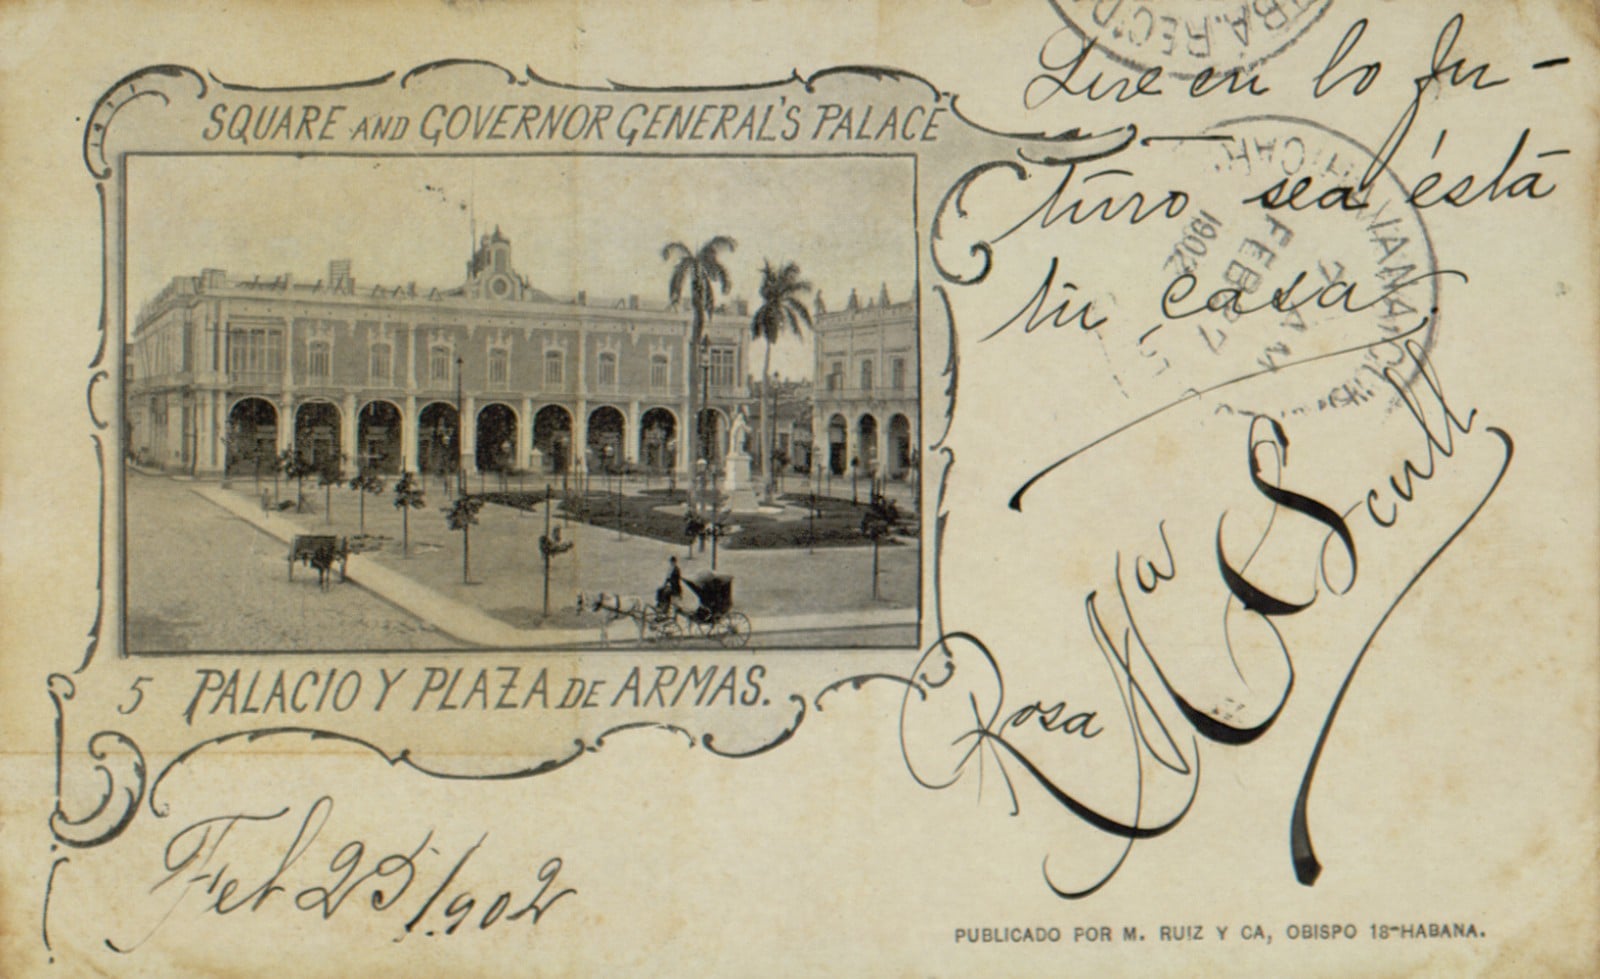 SQUARE AND GOVERNOR GENERAL'S PALACE
5 PALACIO Y PLAZA DE ARMAS.
Que en lo fu-
turo sea ésta
tu casa.
Rosa Ma Scull
Feb 25/1902
BA. REC'D
FEB 27
1902
7 AM
PUBLICADO POR M. RUIZ Y CA, OBISPO 18-HABANA.